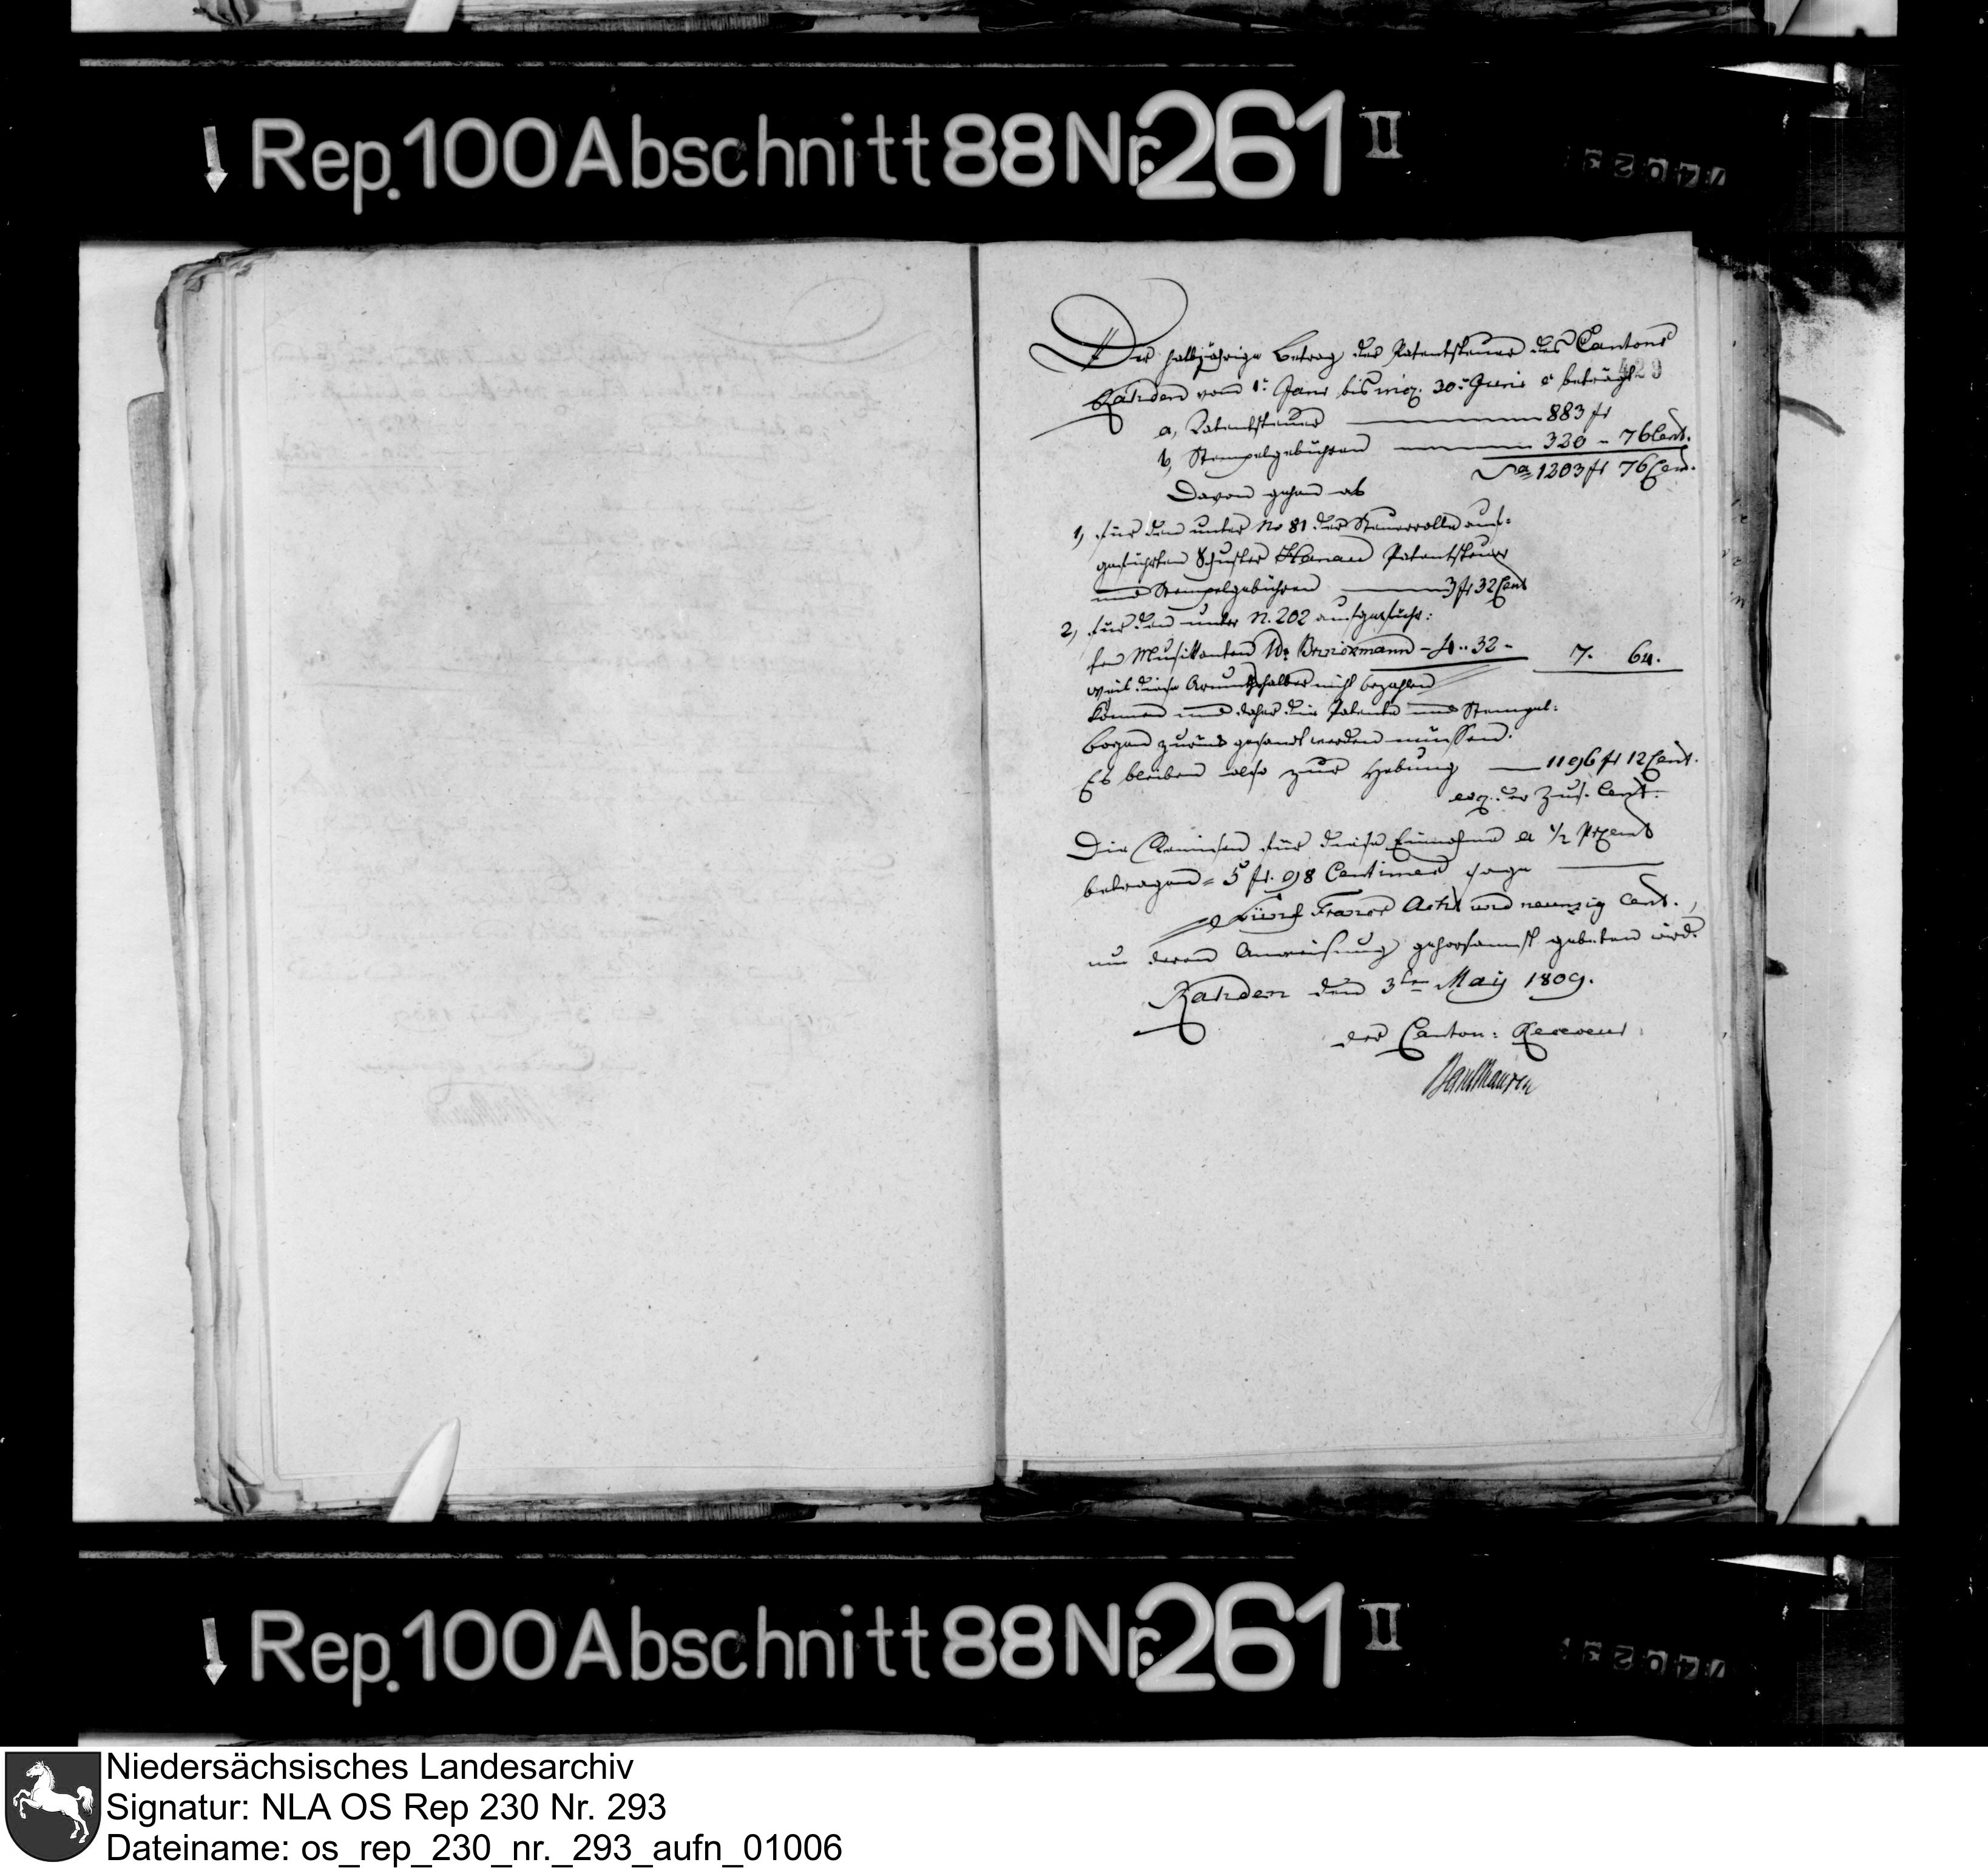 Rep. 100 Abschnitt 88 Nr. 261 II
Der halbjährige Betrag der Patentsteuer des Cantons
429
Rahden vom 1t Janr bis incl. 30t Junii c beträgt
a, Patentsteuer 883 fr
b, Stempelgebühren 320 - 76 Cent.
Sa 1203 fr 76 Cent.
Davon gehen ab
1, für den unter No 81 der Steuerrolle auf-
geführten Schuster Patentsteuer
und Stempelgebühren 3 fr 32 Cent
2, für den unter N. 202 aufgeführ-
ten Musikanten - 4 .. 32 - 7. 64.
weil diese Armuthshalber nicht bezahlen
können und daher die Patente und Stempel-
bogen zurück gesandt werden müssen.
Es bleiben also zur Hebung 1196 fr 12 Cent.
excl. der Zus. Cent.
Die Remisen für diese Einnahme a 1/2 Prcent
betragen = 5 fr. 98 Centimen sage
Fünf Francs Acht und neunzig Cent.,
um deren Anweisung gehorsamst gebeten wird.
Rahden den 3ten Maij 1809.
der Canton: Receveur
Rep. 100 Abschnitt 88 Nr. 261 II
Niedersächsisches Landesarchiv
Signatur: NLA OS Rep 230 Nr. 293
Dateiname: os_rep_230_nr._293_aufn_01006